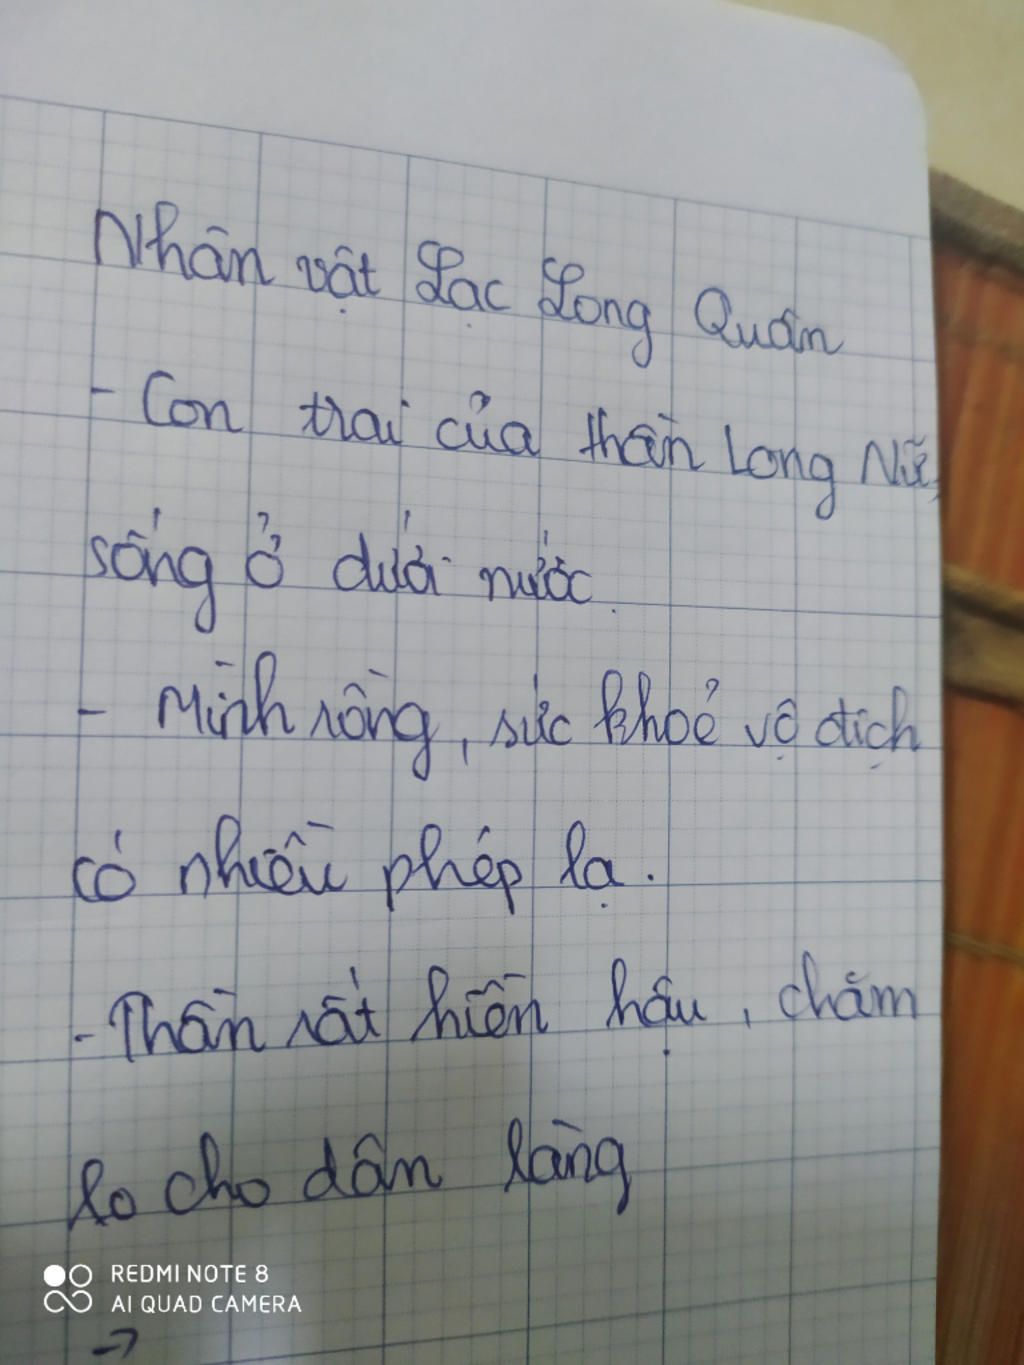 Nhân vật Lạc Long Quân
- Con trai của thần Long Nữ,
sống ở dưới nước.
- Mình rồng, sức khoẻ vô địch
có nhiều phép lạ.
- Thần rất hiền hậu, chăm
lo cho dân làng
REDMI NOTE 8
AI QUAD CAMERA
→